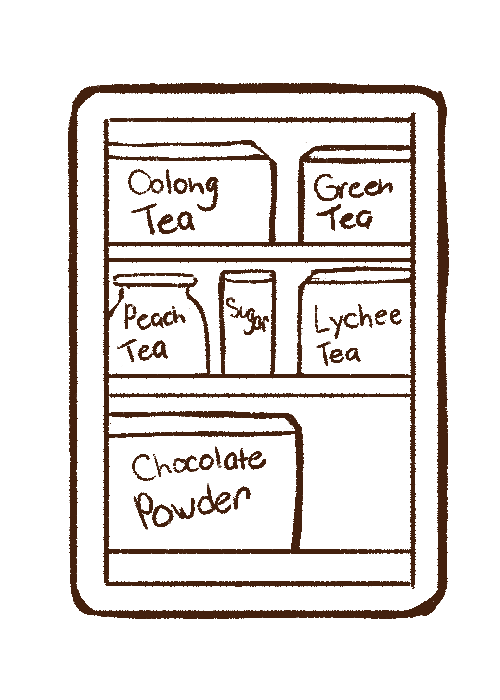 Oolong
Tea
Green
Tea
Peach
Tea
Sugar
Lychee
Tea
Chocolate
Powder